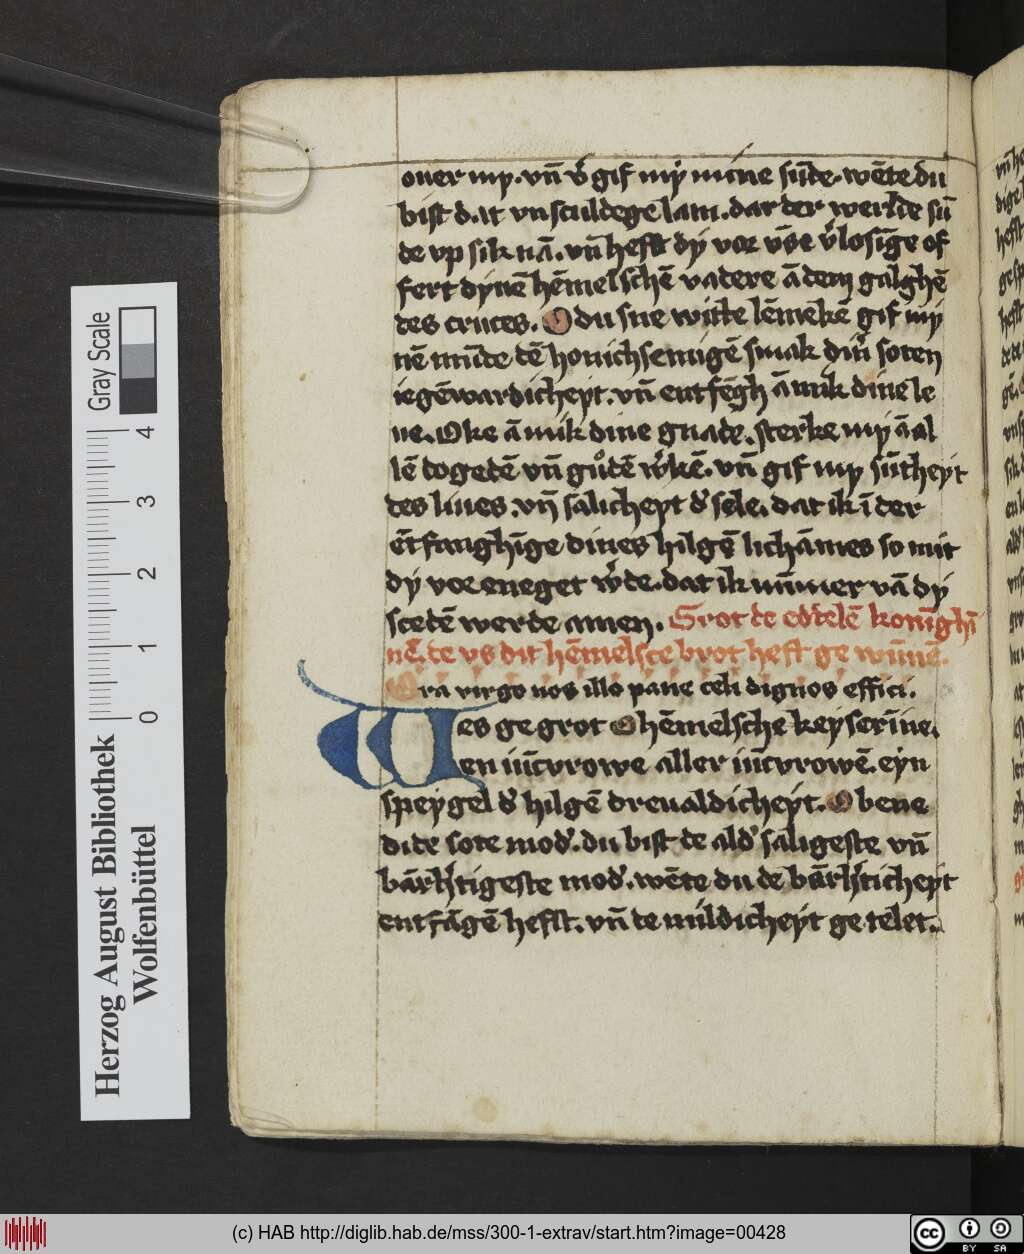 ouer my. vn̄ v̓gif mẏ mine su̅de. wēte du
bist dat vnsculdege lam. dar der werlde su̅
de vp sik nā. vn̄ hefst dẏ vor vse v̓losīge of
fert dẏnē hēmelschē vadere ā dem galghē
des cruces. O du sne witte lēmekē gif mẏ
nē mūde dē honichsemigē smak din̓ soten
iegēwardicheẏt. vn̄ entfēgh ā mik dine le
ue. Oke ā mik dine gnade. sterke mẏ ā al
lē dogedē vn̄ gůdē w̓kē. vn̄ gif mẏ sūtheẏt
des liues. vn̄ salicheẏt d̓ sele. dat ik ī der
ētfanghīge dines hilgē lichāmes so mit
dẏ vor eneget w̓de. dat ik nūmer vā dẏ
scedē werde amen. Grot de eddelē konīghī
nē. de vs dit hēmelsce brot heft ge wūnē.
Ora virgo nos illo pane celi dignos effici.
Wes ge grot O hēmelsche keẏserīne.
en iūcvrowe aller iūcvrowē. eẏn
speẏgel d̓ hilgē dreualdicheẏt. O bene
dide sote mod̓. du bist de ald̓ saligeste vn̄
bārh̓tigeste mod̓. wēte du de bārh̓ticheẏt
entfāgē hefst. vn̄ de mildicheẏt ge telet.
Gray Scale
0 1 2 3 4
Herzog August Bibliothek
Wolfenbüttel
(c) HAB http://diglib.hab.de/mss/300-1-extrav/start.htm?image=00428
cc BY SA